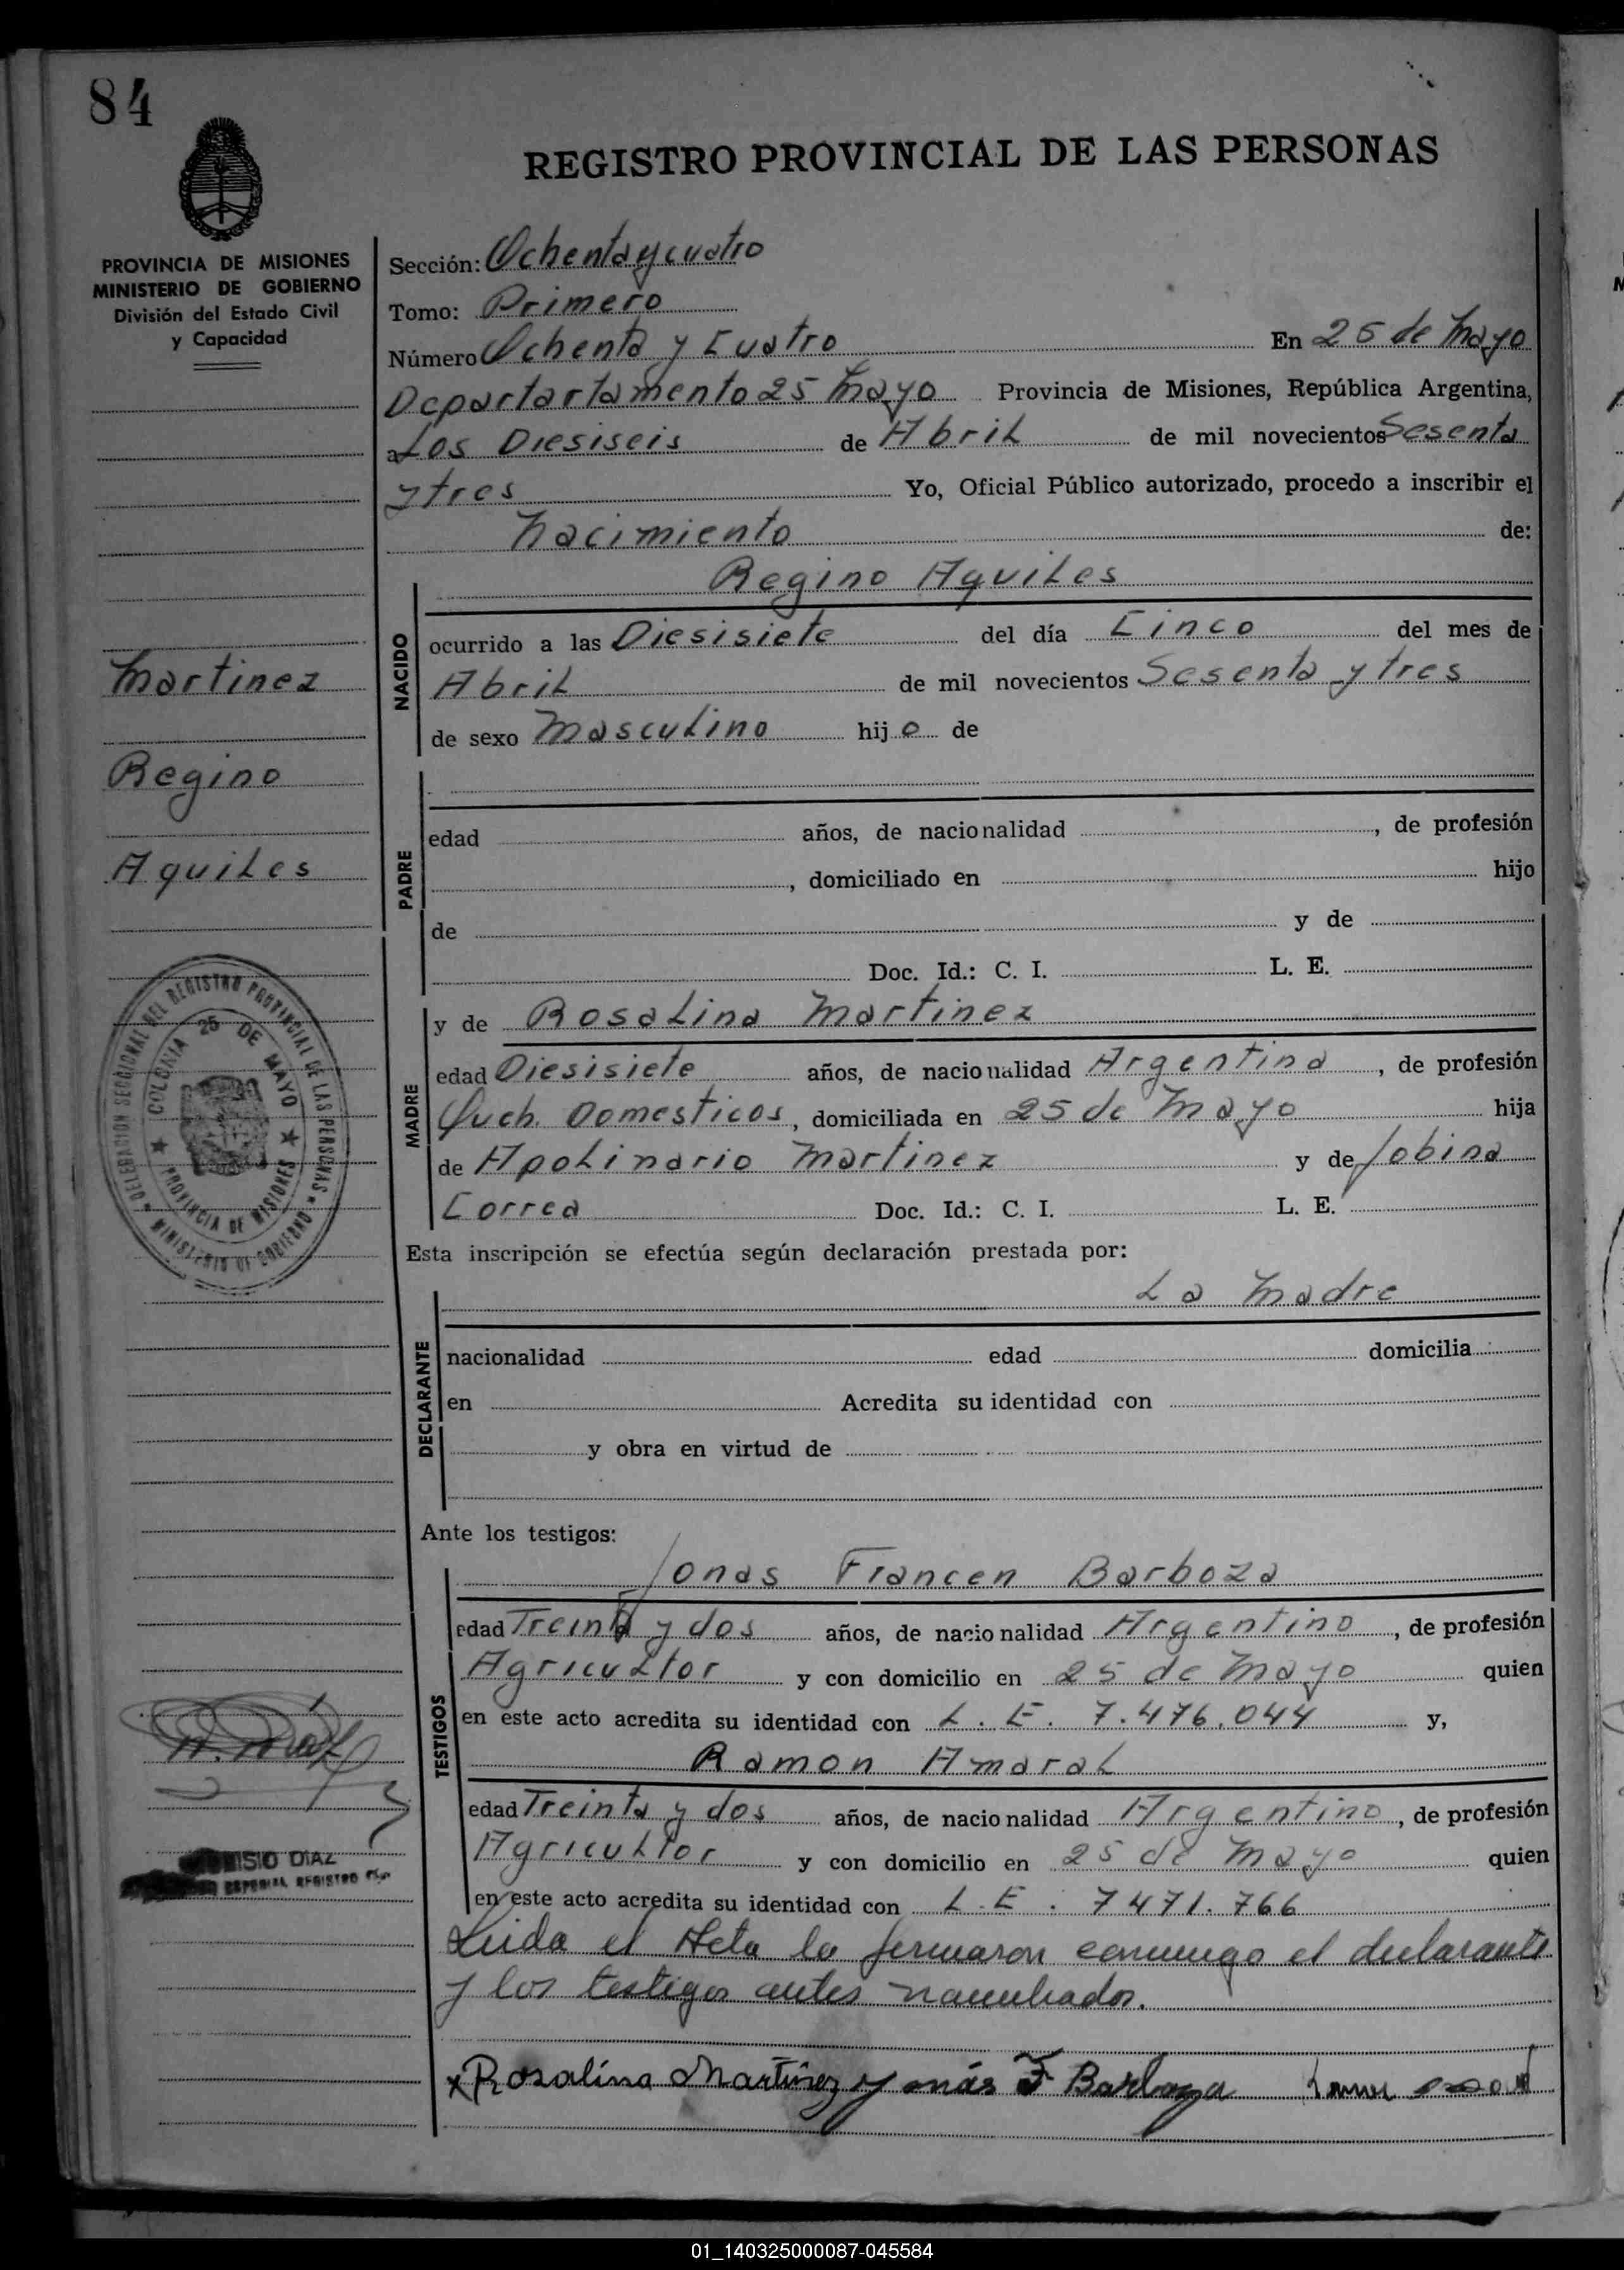 84
REGISTRO PROVINCIAL DE LAS PERSONAS
PROVINCIA DE MISIONES
MINISTERIO DE GOBIERNO
División del Estado Civil
y Capacidad
Sección: Ochenta y cuatro
Tomo: Primero
Número Ochenta y Cuatro En 25 de Mayo
Departartamento 25 Mayo Provincia de Misiones, República Argentina,
a Los Diesiseis de Abril de mil novecientos Sesenta
y tres Yo, Oficial Público autorizado, procedo a inscribir el
Nacimiento de:
Regino Aquiles
NACIDO
ocurrido a las Diesisiete del día Cinco del mes de
Abril de mil novecientos Sesenta y tres
de sexo Masculino hijo de
Martinez
Regino
Aquiles
PADRE
edad años, de nacionalidad , de profesión
, domiciliado en hijo
de y de
Doc. Id.: C. I. L. E.
DELEGACION SECCIONAL DEL REGISTRO PROVINCIAL DE LAS PERSONAS
MINISTERIO DE GOBIERNO
COLONIA 25 DE MAYO
PROVINCIA DE MISIONES
MADRE
y de Rosalina Martinez
edad Diesisiete años, de nacionalidad Argentina, de profesión
Quch. Domesticos, domiciliada en 25 de Mayo hija
de Apolinario Martinez y de Jobina
Correa Doc. Id.: C. I. L. E.
Esta inscripción se efectúa según declaración prestada por:
La Madre
DECLARANTE
nacionalidad edad domicilia
en Acredita su identidad con
y obra en virtud de
Ante los testigos:
Jonas Francen Barboza
TESTIGOS
edad Treinta y dos años, de nacionalidad Argentino, de profesión
Agricultor y con domicilio en 25 de Mayo quien
en este acto acredita su identidad con L. E. 7.476.044 y,
Ramon Amaral
edad Treinta y dos años, de nacionalidad Argentino, de profesión
Agricultor y con domicilio en 25 de Mayo quien
en este acto acredita su identidad con L. E. 7471.766
DIAZ
REGISTRO
Leida el Acta la firmaron conmigo el declarante
y los testigos antes nombrados.
x Rosalina Martinez Jonás F Barboza
01_140325000087-045584